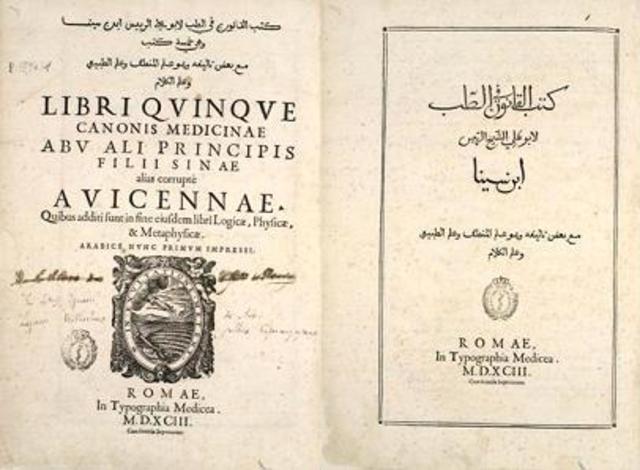 كتب القانون في الطب لابو علي الشيخ الرييس ابن سينا
وهي خمسة كتب
مع بعض تاليفه وهو علم المنطق وعلم الطبيعي
وعلم الكلام
LIBRI QVINQVE
CANONIS MEDICINAE
ABV ALI PRINCIPIS
FILII SINAE
alias corruptè
AVICENNAE.
Quibus additi sunt in fine eiusdem libri Logicæ, Physicæ,
& Metaphysicæ.
ARABICE NVNC PRIMVM IMPRESSI.
ROMAE,
In Typographia Medicea.
M.D.XCIII.
كتب القانون في الطب
لابو علي الشيخ الرييس
ابن سينا
مع بعض تاليفه وهو علم المنطق وعلم الطبيعي
وعلم الكلام
ROMAE,
In Typographia Medicea.
M.D.XCIII.